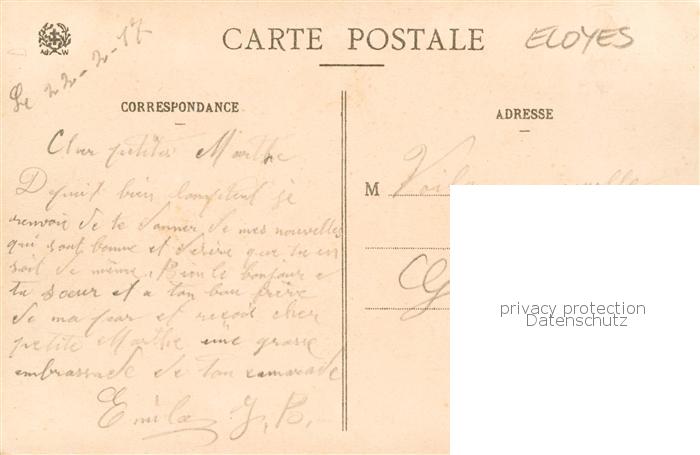 CARTE POSTALE
ELOYES
Le 22-2-17
CORRESPONDANCE
ADRESSE
Cher petites Marthe
Depuit bien lomptent je
renvoie de te donner de mes nouvelles
qui sont bonne et desire que tu en
soit de même. Bien le bonjour a
ta soeur et a ton bau frère
de ma par et reçois cher
petite Marthe une grosse
embrassade de ton camarade
Emile J, B.
M
privacy protection
Datenschutz